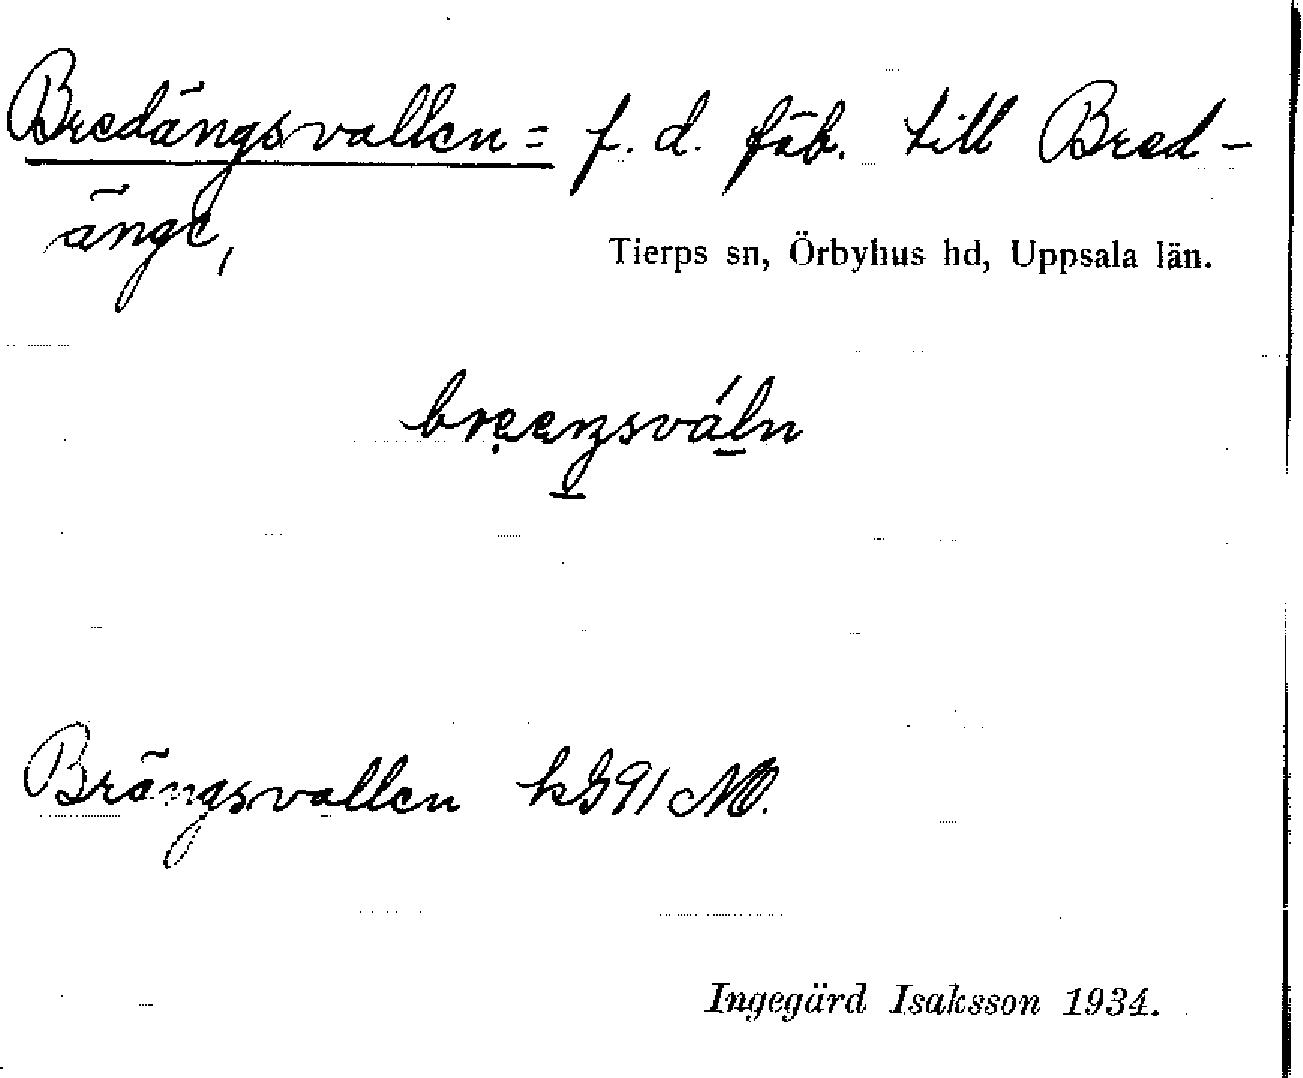 Bredängsvallen = f. d. fäb. till Bred-
änge,
Tierps sn, Örbyhus hd, Uppsala län.
Brängsvallen
Ingegärd Isaksson 1934.